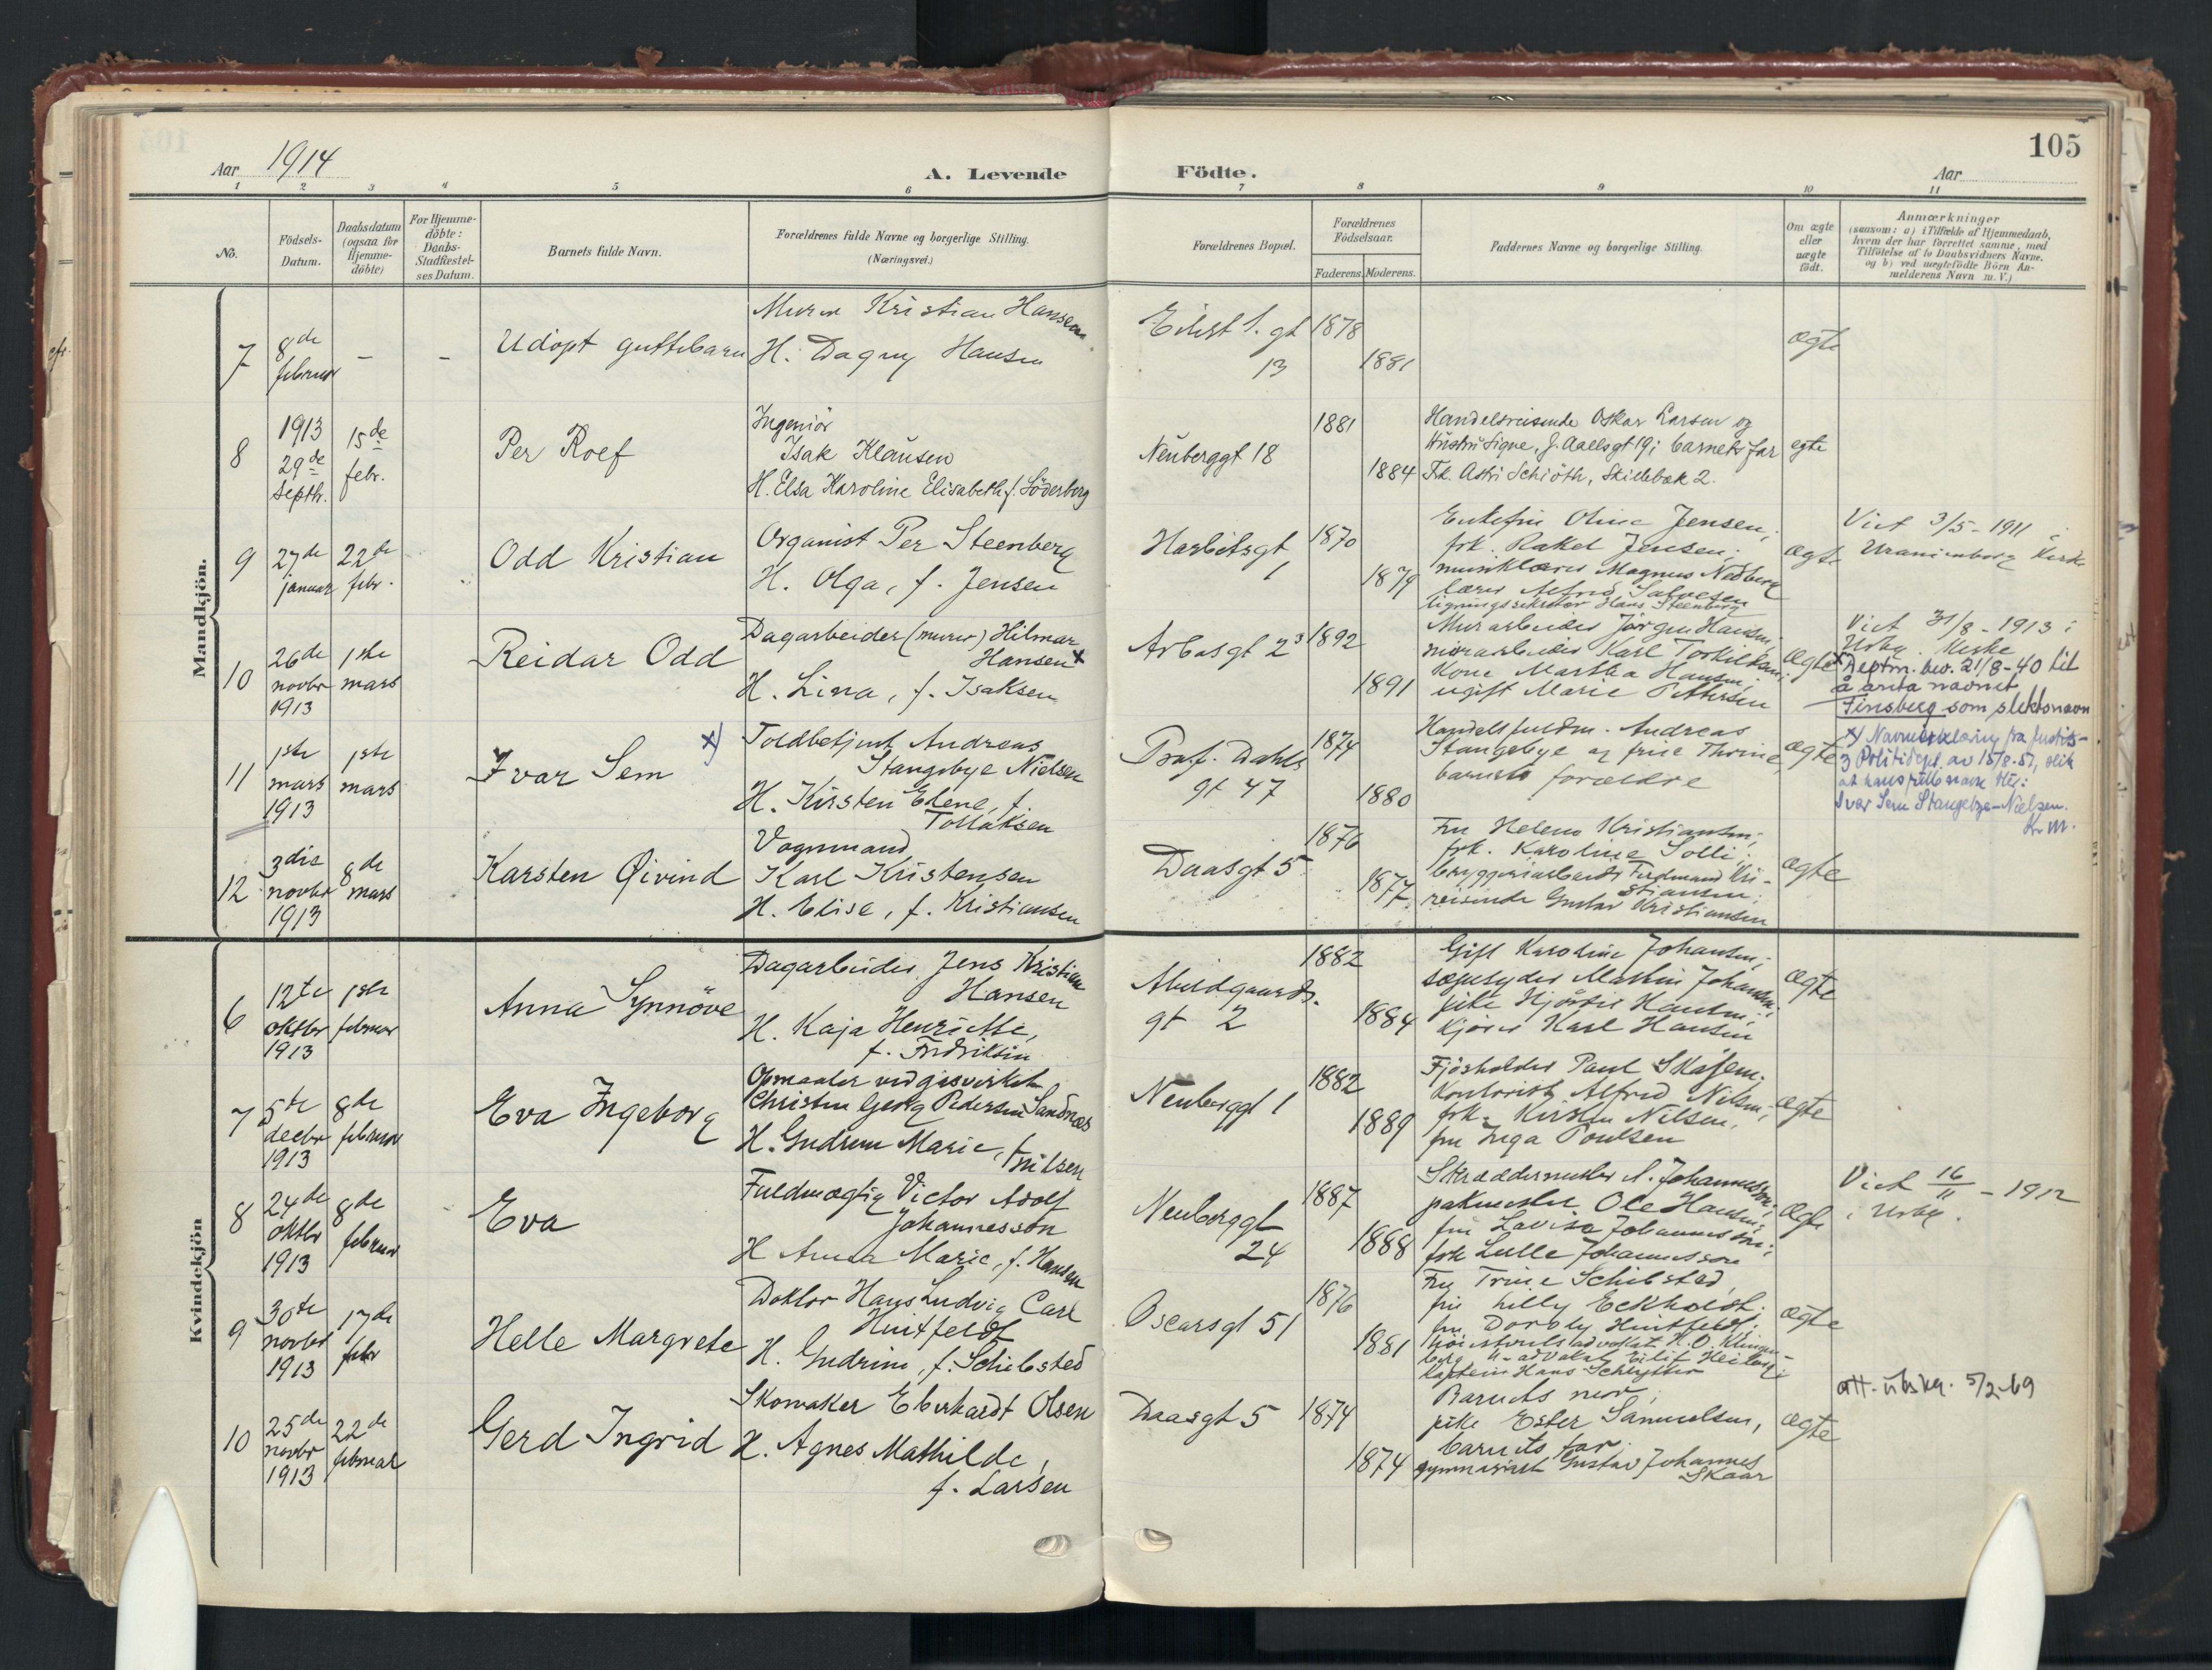 105
Aar 1914
A. Levende Födte.
Aar
1 2 3 4 5 6 7 8 9 10 11
No.
Födsels-
Datum.
Daabsdatum
(ogsaa for
Hjemme-
döbte)
For Hjemme-
döbte:
Daabs-
Stadfæstel-
ses Datum.
Barnets fulde Navn.
Forældrenes fulde Navne og borgerlige Stilling.
(Næringsvei.)
Forældrenes Bopæl.
Forældrenes
Födselsaar.
Faderens. Moderens.
Faddernes Navne og borgerlige Stilling.
Om ægte
eller
uægte
födt.
Anmærkninger
(saasom: a) i Tilfælde af Hjemmedaab,
hvem der har forrettet samme, med
Tilföielse af to Daabsvidners Navne,
og b) ved uægtefödte Börn An-
melderens Navn m. V.)
Mandkjön.
7
8de
februar
-
-
Udöpt guttebarn
Murer Kristian Hansen
H. Dagny Hansen
Eilert S. gt
13
1878
1881
ægte
8
1913
29de
septbr.
15de
febr.
Per Roef
Ingeniör
Isak Klausen
H. Elsa Karoline Elisabeth f. Söderberg
Neuberggt 18
1881
1884
Handelsreisende Oskar Larsen og
Hustru Signe, J. Aallsgt 19; barnets far
Frk. Astri Schiöth, Skillebæk 2.
egte
9
27de
januar
22de
febr.
Odd Kristian
Organist Per Steenberg
H. Olga, f. Jensen
Harbitzgt
1
1870
1879
Enkefru Oline Jensen;
frk. Rakel Jensen;
musiklærer Magnus Nedberg
lærer Alfred Salvesen
ligningssekretær Hans Steenberg
ægte
Viet 3/5-1911 i
Uranienborg Kirke
10
26de
novbr
1913
1ste
mars
Reidar Odd
Dagarbeider (murer) Hilmar
Hansen x
H. Lina, f. Isaksen
Arbosgt 23
1892
1891
Murarbeider Jörgen Hansen;
murarbeider Karl Torkildsen;
Kone Martha Hansen;
ugift Marie Pettersen
ægte
Viet 31/8-1913 i
Urbg. Kirke
x Deptm. bev. 21/8-40 til
å anta navnet
Finsberg som slektsnavn
11
1ste
mars
1913
1ste
mars
Ivar Sem
x)
Toldbetjent Andreas
Stangebye Nielsen
H. Kirsten Elene, f.
Tollaksen
Prof. Dahls
gt 47
1874
1880
Handelsfuldm. Andreas
Stangebye og frue Thrine,
barnets forældre
ægte
x) Navneerklæring fra Justis-
& Politidept. av 15/8-51, slik
at hans fulle navn blir:
Ivar Sem Stangebye-Nielsen.
Kr. M.
12
3die
novbr
1913
8de
mars
Karsten Øivind
Vognmand
Karl Kristensen
H. Elise, f. Kristiansen
Daasgt 5
1876
1877
Fru Helene Kristiansen;
frk. Karoline Solli;
bryggeriarbeider Ferdinand Kri-
stiansen;
reisende Gustav Kristiansen
ægte
Kvindekjön
6
12te
oktbr
1913
1ste
februar
Anna Synnöve
Dagarbeider Jens Kristian
Hansen
H. Kaja Henriette,
f. Fredriksen
Abildgaards-
gt 2
1882
1884
Gift Karoline Johansen;
Johansen;
pike Hjördis Hansen;
kjörer Karl Hansen
ægte
7
5te
decbr
1913
8de
februar
Eva Ingeborg
Opmaaler ved gasverket
Christen Georg Pedersen Sandnæs
H. Gudrun Marie, f.
Nilsen
Neuberggt 1
1882
1889
Fjösholder Paul Skåsem.
Kontorist Alfred Nilsen;
frk. Kirsten Nilsen,
fru Inga Poulsen
ægte
8
24de
oktbr
1913
8de
februar
Eva
Fuldmægtig Victor Adolf
Johannesson
H Anna Marie, f. Hansen
Neuberggt
24
1887
1888
Skræddermester A. Johannesson;
pakmester Ole Hansen;
fru Lovisa Johannesson;
frk Lulle Johannesson
ægte
Viet 16/11-1912
i Urbg.
9
30te
novbr
1913
17de
febr
Helle Margrete
Doktor Hans Ludvig Carl
Huitfeldt
H. Gudrun, f. Schibsted
Oscarsgt 51
1876
1881
Fru Trine Schibsted,
fru Lilly Eckholdt;
fru Dordy Huitfeldt;
höiesteretsadvokat K. O. Klingen-
berg o-advokat Eilif Heiberg;
kaptein Hans Schlytter
ægte
10
25de
novbr
1913
22de
februar
Gerd Ingrid
Skomaker Eberhardt Olsen
H. Agnes Mathilde,
f. Larsen
Daasgt 5
1874
1874
Barnets mor;
pike Ester Samuelsen,
barnets far;
gymnasiast Gustav Johannes
Skaar
ægte
att.utskr. 5/2-69